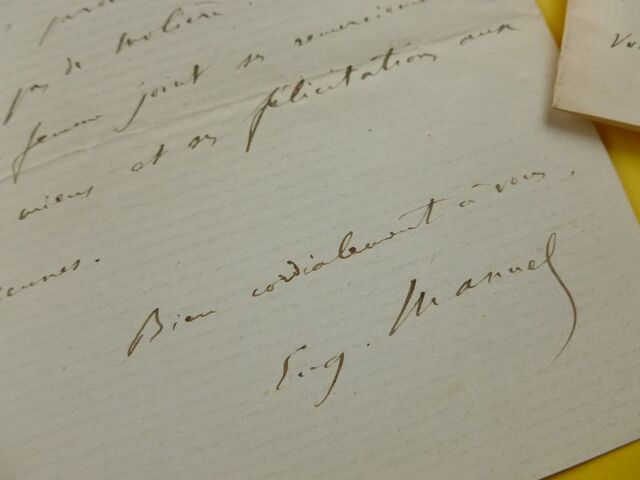 pas de Molière
femme joint ses remerciements
miens et ses félicitations aux
Bien cordialement à vous.
Eug. Manuel